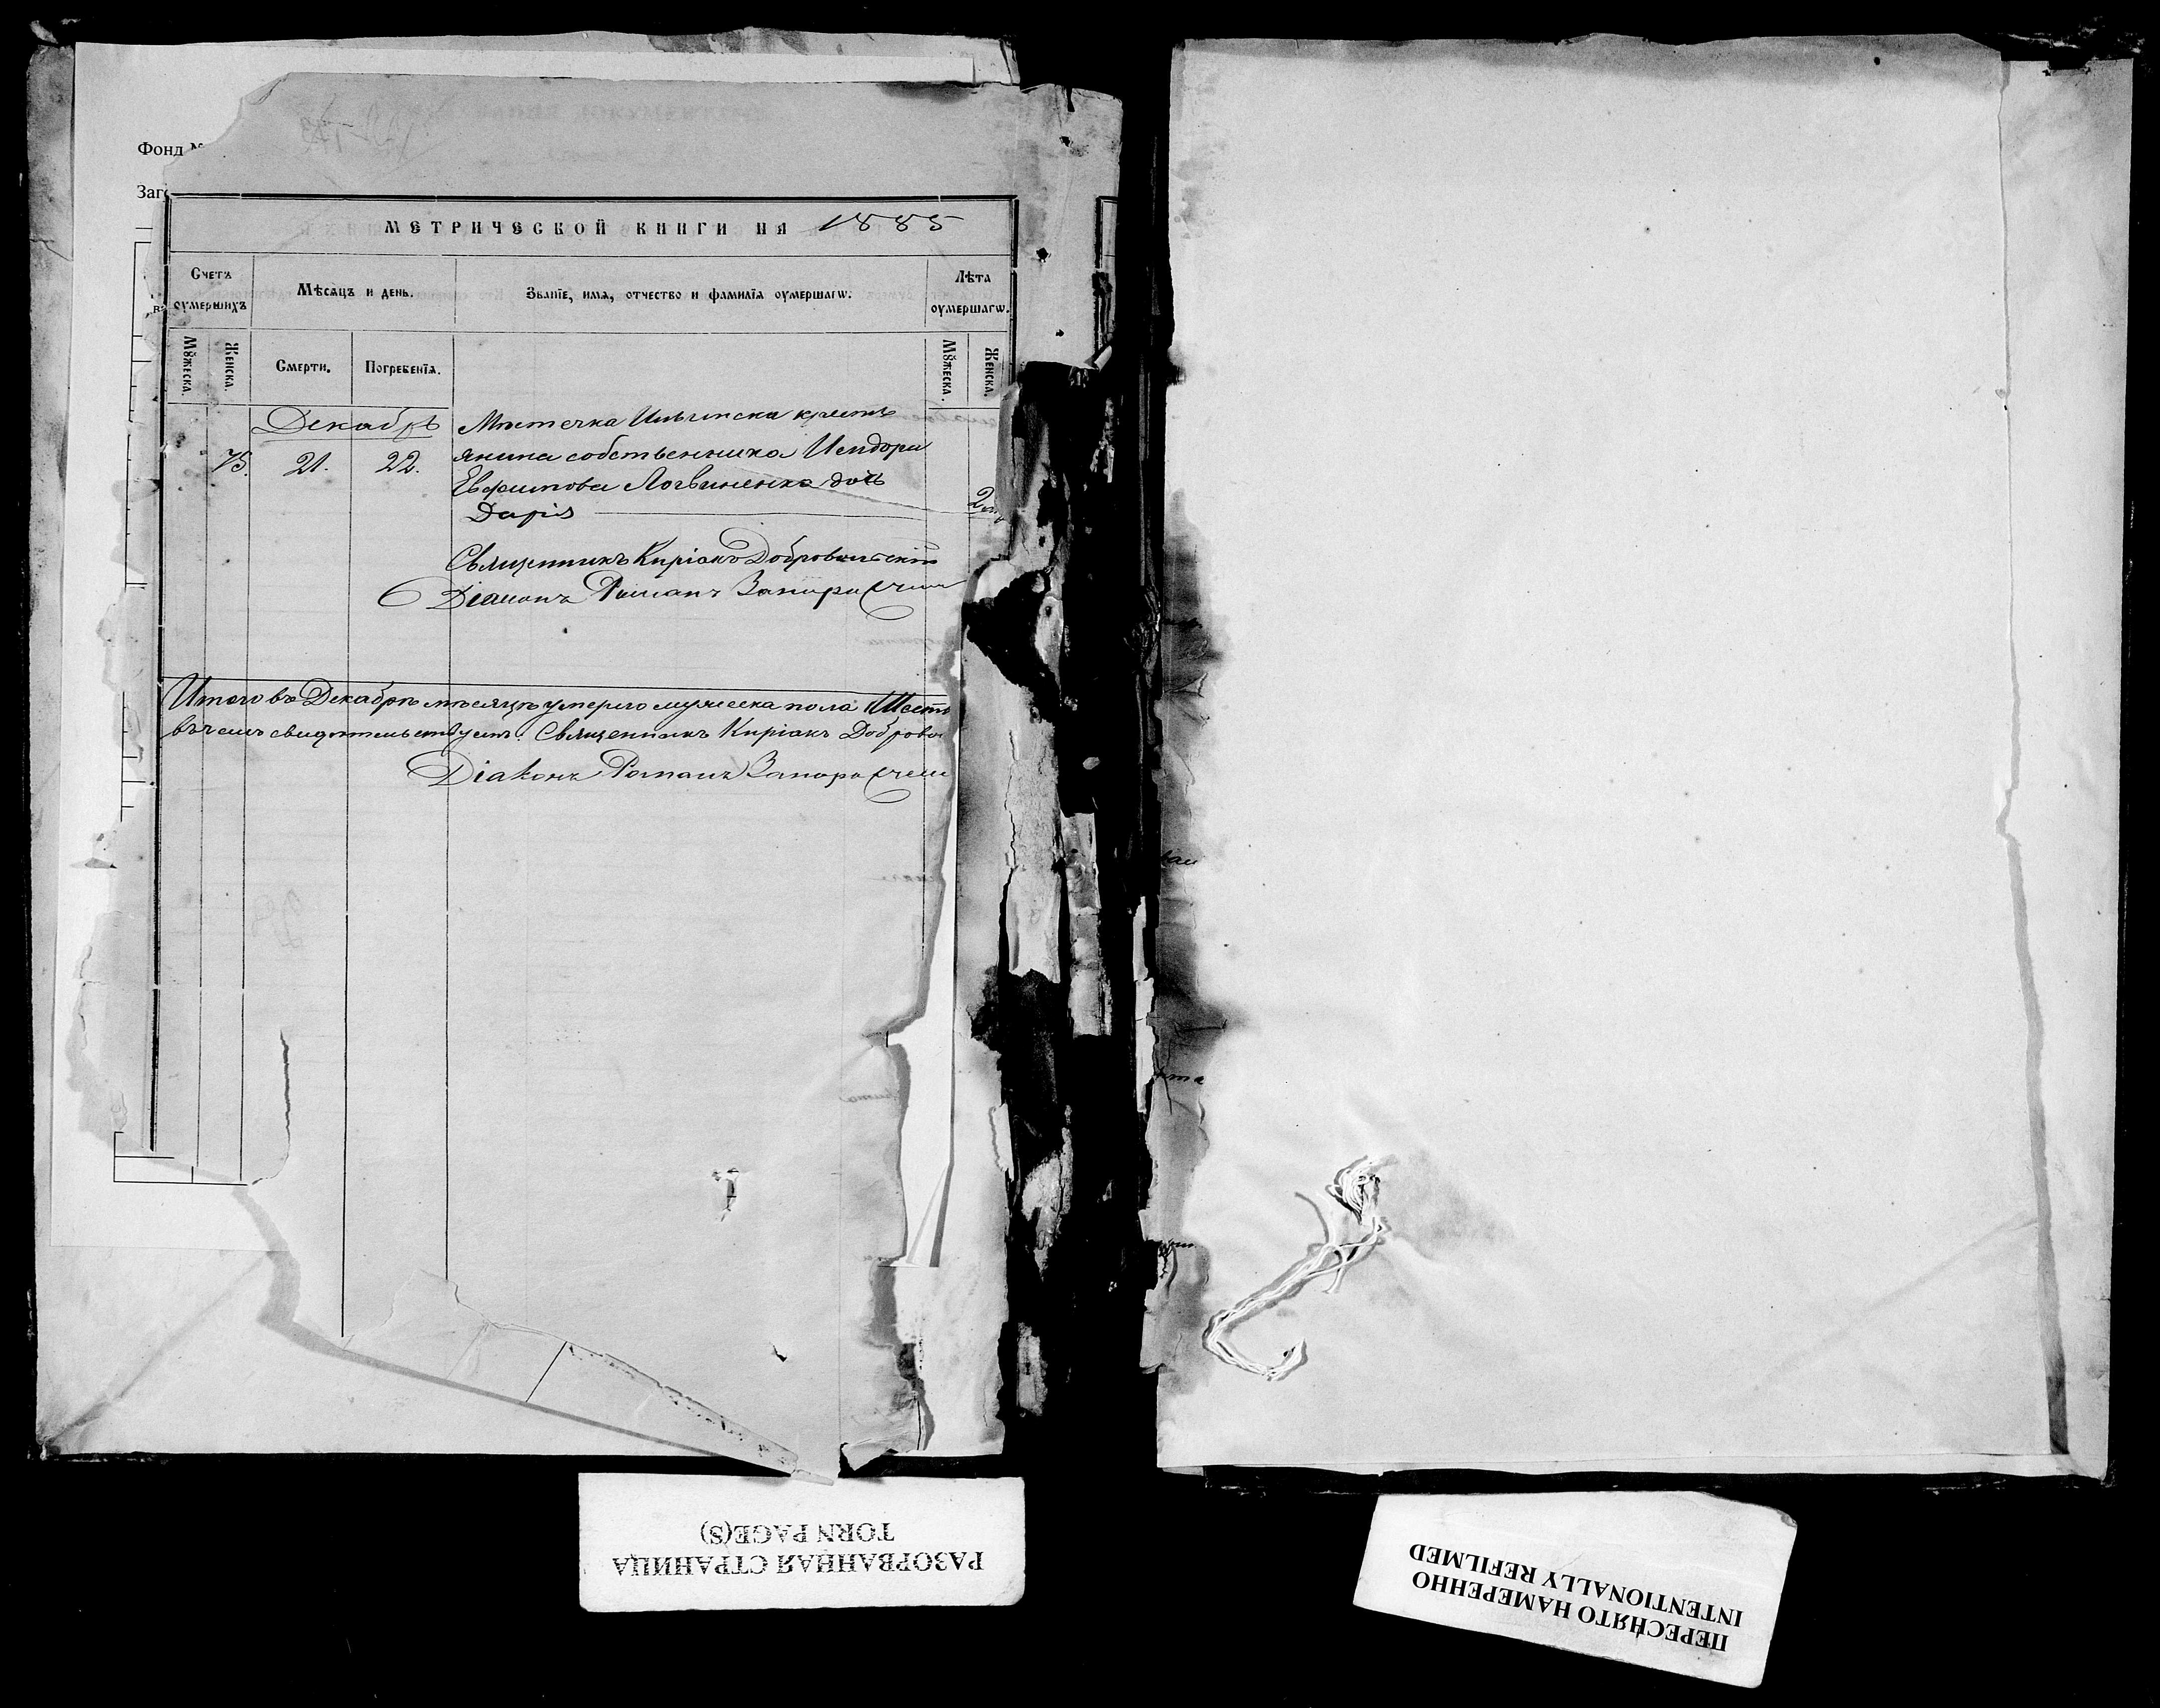 Фонд №
Заг
МЕТРИЧЕСКОЙ КНИГИ НА 1885
Счетъ оумершихъ
Мѣсяцъ и день.
Званїе, имя, отчество и фамилїя оумершагѡ.
Лѣта оумершагѡ.
Мꙋжеска.
Женска.
Смерти.
Погребенїя.
Мꙋжеска.
Женска.
Декабрь
Местечка Ильинска крестъ
75. 21. 22. янина собственника Исидора
Евфимова Логвиненка дочь
Дарія 2
Священникъ Киріакъ Добровольскій
Діаконъ Романъ
Итого въ Декабрѣ мѣсяцѣ умерло мужеска пола Шесть
въ чемъ свидѣтельствуемъ: Священникъ Киріакъ Добровол
Діаконъ Романъ
РАЗОРВАННАЯ СТРАНИЦА
TORN PAGE(S)
ПЕРЕСНЯТО НАМЕРЕННО
INTENTIONALLY REFILMED